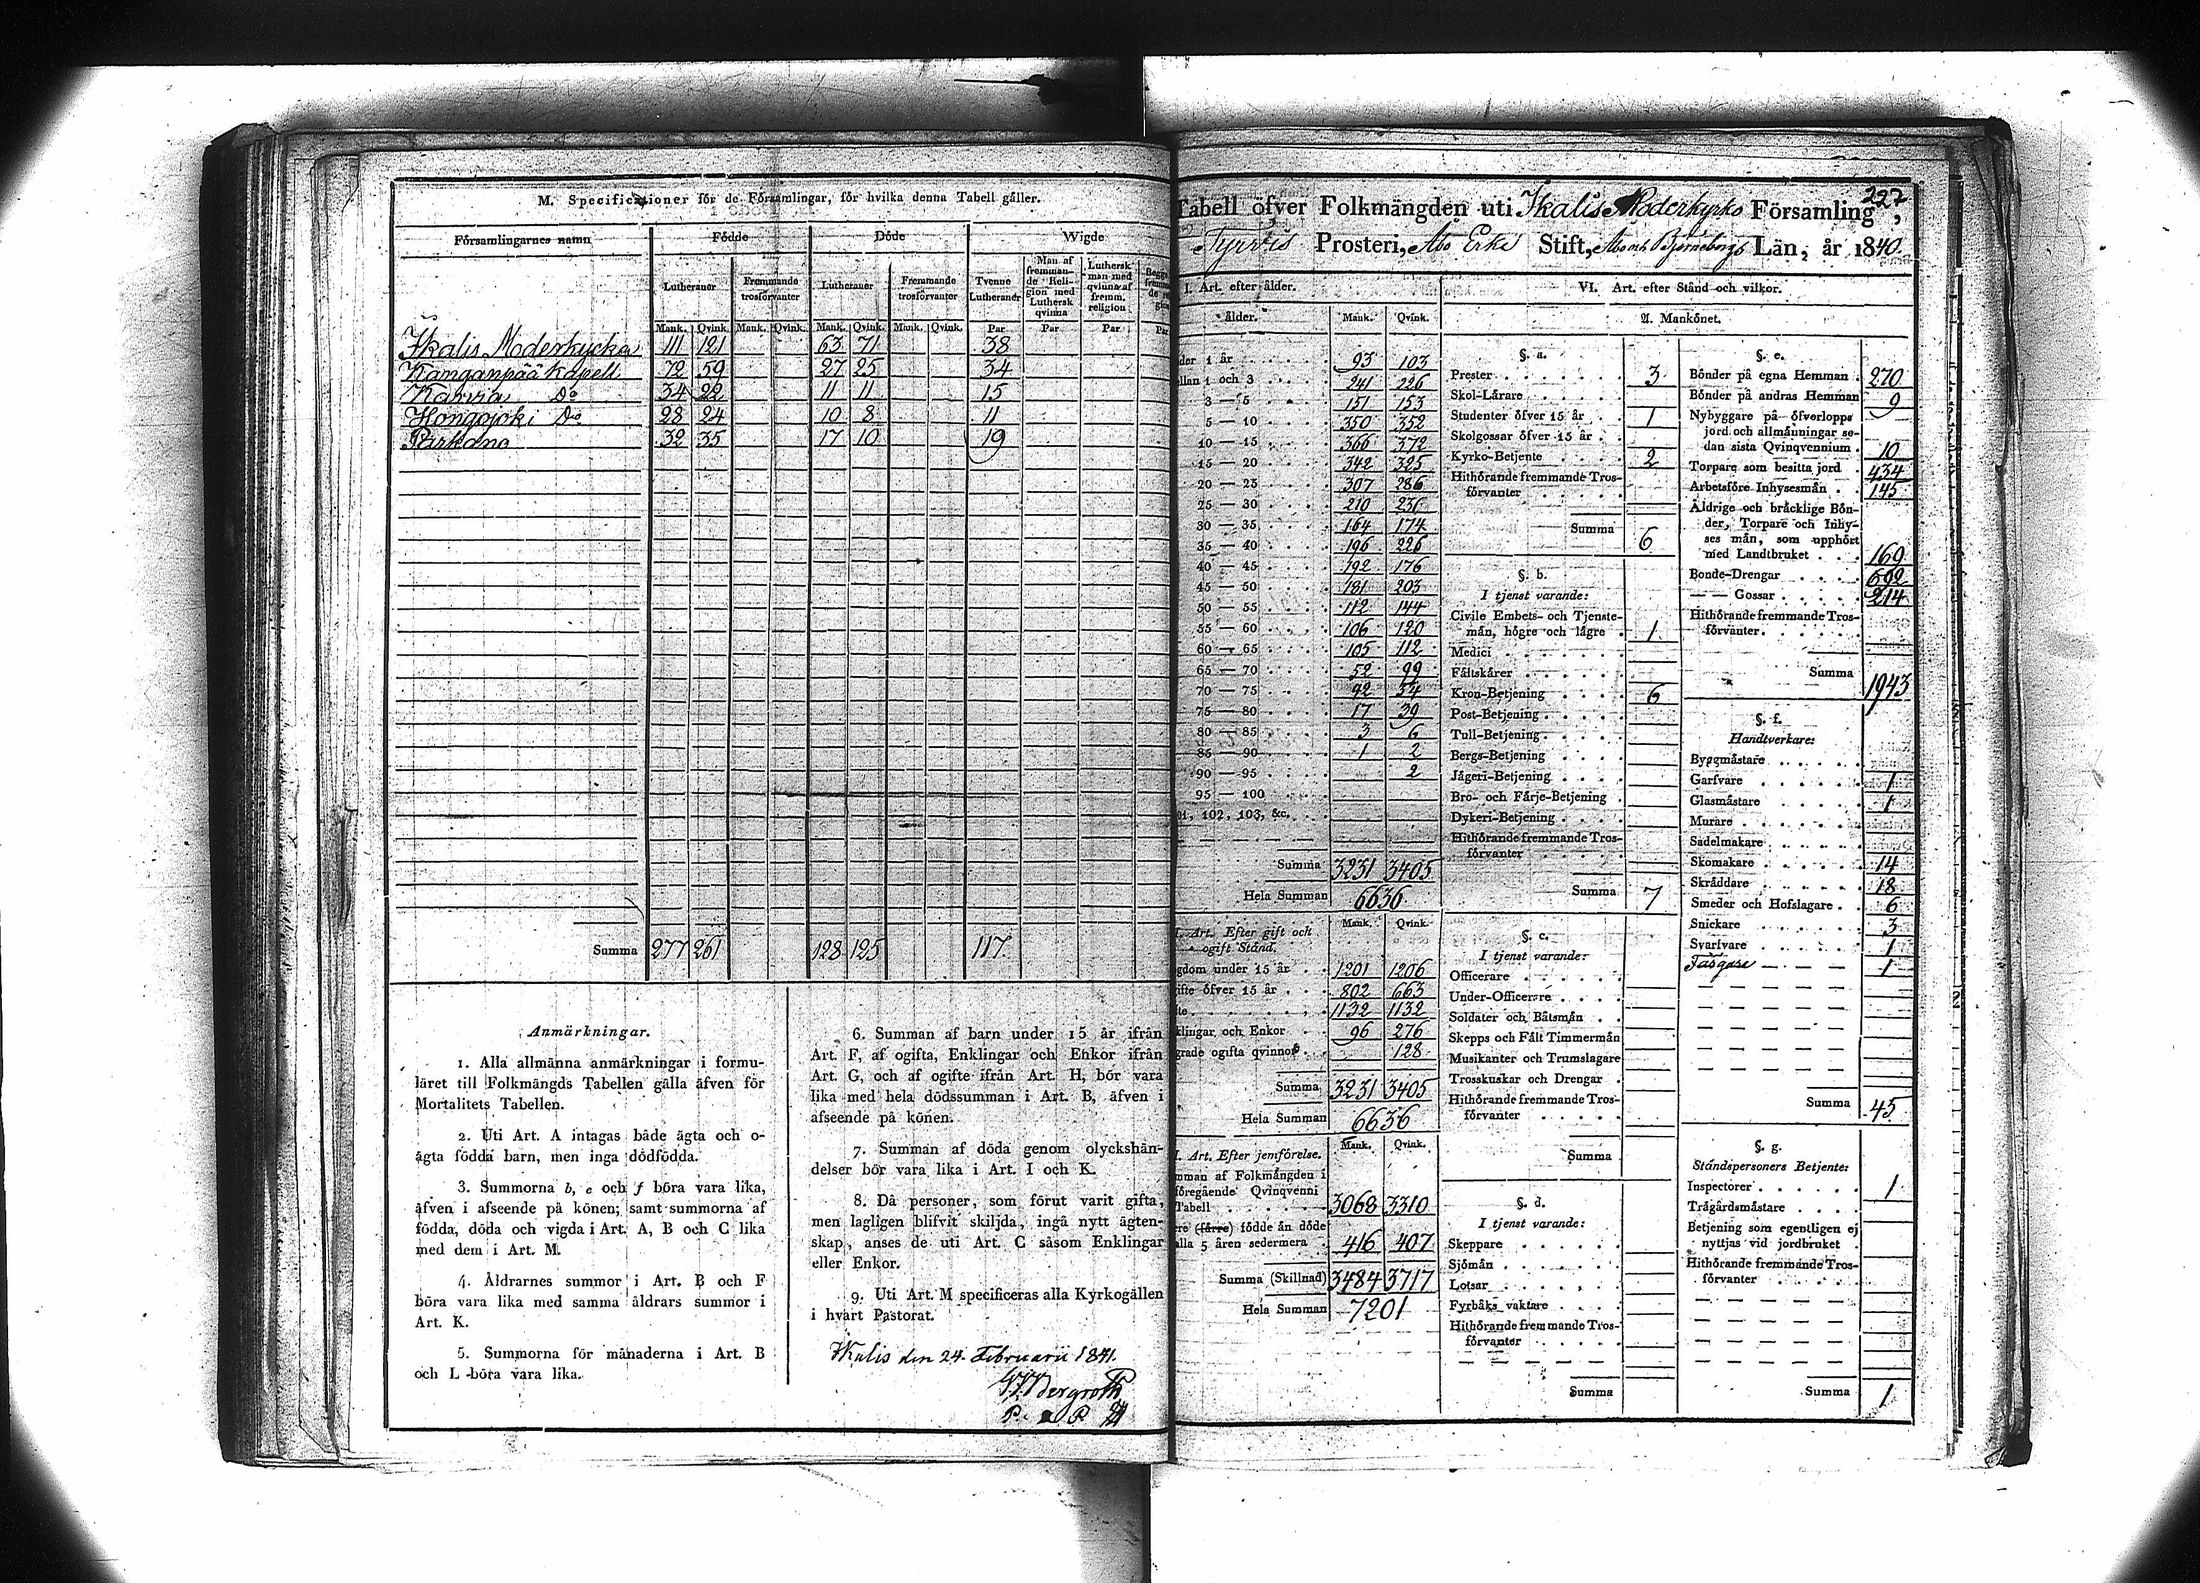 M. Specificationer för de Församlingar, för hvilka denna Tabell gäller.
Församlingarnes namn | Födde | Döde | Wigde
Lutheraner | Fremmande trosförvanter | Lutheraner | Fremmande trosförvanter | Tvenne Lutheraner | Man af fremmande Religion med Luthersk qvinna | Luthersk man med qvinna af fremm. religion
Mank. | Qvink. | Mank. | Qvink. | Mank. | Qvink. | Mank. | Qvink. | Par | Par | Par | Par
Ikalis Moderkyrka 111 121 63 71 38
Kanganpää Kapell 72 59 27 25 34
Karvia Do 34 22 11 11 15
Hongojoki Do 28 24 10 8 11
Parkano 32 35 17 10 19
Summa 277 261 128 125 117.
Anmärkningar.
1. Alla allmänna anmärkningar i formu-
läret till Folkmängds Tabellen gälla äfven för
Mortalitets Tabellen.
2. Uti Art. A intagas både ägta och o-
ägta födda barn, men inga dödfödda.
3. Summorna b, e och f böra vara lika,
äfven i afseende på könen; samt summorna af
födda, döda och vigda i Art. A, B och C lika
med dem i Art. M.
4. Åldrarnes summor i Art. B och F
böra vara lika med samma åldrars summor i
Art. K.
5. Summorna för månaderna i Art. B
och L böra vara lika.
6. Summan af barn under 15 år ifrån
Art. F, af ogifta, Enklingar och Enkor ifrån
Art. G, och af ogifte ifrån Art. H, bör vara
lika med hela dödssumman i Art. B, äfven i
afseende på könen.
7. Summan af döda genom olyckshän-
delser bör vara lika i Art. I och K.
8. Då personer, som förut varit gifta,
men lagligen blifvit skiljda, ingå nytt ägten-
skap, anses de uti Art. C såsom Enklingar
eller Enkor.
9. Uti Art. M specificeras alla Kyrkogällen
i hvart Pastorat.
Ikalis den 24. Februarii 1841.
Bergroth
227
Tabell öfver Folkmängden uti Ikalis Moderkyrko Församling,
Tyrvis Prosteri, Åbo Erke Stift, Åbo och Björneborgs Län, år 1840.
I. Art. efter ålder.
ålder. Mank. Qvink.
der 1 år 93 103
llan 1 och 3 241 226
3 — 5 151 153
5 — 10 350 352
10 — 15 366 372
15 — 20 342 325
20 — 25 307 286
25 — 30 210 231
30 — 35 164 174
35 — 40 196 226
40 — 45 192 176
45 — 50 181 203
50 — 55 112 144
55 — 60 106 120
60 — 65 105 112
65 — 70 52 99
70 — 75 42 54
75 — 80 17 39
80 — 85 3 6
85 — 90 1 2
90 — 95 2
95 — 100
101, 102, 103, &c.
Summa 3231 3405
Hela Summan 6636
Mank. Qvink.
I. Art. Efter gift och
ogift Stånd.
gdom under 15 år 1201 1206
ifte öfver 15 år 802 663
te 1132 1132
klingar och Enkor 96 276
grade ogifta qvinnor 128
Summa 3231 3405
Hela Summan 6636
Mank. Qvink.
I. Art. Efter jemförelse.
mman af Folkmängden i
föregående Qvinqvenni
Tabell 3068 3310
re (färre) födde än döde
alla 5 åren sedermera 416 407
Summa (Skillnad) 3484 3717
Hela Summan 7201
VI. Art. efter Stånd och vilkor.
A. Mankönet.
§. a.
Prester 3
Skol-Lärare
Studenter öfver 15 år 1
Skolgossar öfver 15 år
Kyrko-Betjente 2
Hithörande fremmande Tros-
förvanter
Summa 6
§. b.
I tjenst varande:
Civile Embets- och Tjenste-
män, högre och lägre 1
Medici
Fältskärer
Kron-Betjening 6
Post-Betjening
Tull-Betjening
Bergs-Betjening
Jägeri-Betjening
Bro- och Färje-Betjening
Dykeri-Betjening
Hithörande fremmande Tros-
förvanter
Summa 7
§. c.
I tjenst varande:
Officerare
Under-Officerare
Soldater och Båtsmän
Skepps och Fält Timmermän
Musikanter och Trumslagare
Trosskuskar och Drengar
Hithörande fremmande Tros-
förvanter
Summa
§. d.
I tjenst varande:
Skeppare
Sjömän
Lotsar
Fyrbåks vaktare
Hithörande fremmande Tros-
förvanter
Summa
§. e.
Bönder på egna Hemman 270
Bönder på andras Hemman 9
Nybyggare på öfverlopps
jord och allmänningar se-
dan sista Qvinqvennium 10
Torpare som besitta jord 434
Arbetsföre Inhysesmän 145
Åldrige och bräcklige Bön-
der, Torpare och Inhy-
ses män, som upphört
med Landtbruket 169
Bonde-Drengar 692
— — Gossar 214
Hithörande fremmande Tros-
förvanter
Summa 1943
§. f.
Handtverkare:
Byggmästare
Garfvare 1
Glasmästare 1
Murare
Sadelmakare
Skomakare 14
Skräddare 18
Smeder och Hofslagare 6
Snickare 3
Svarfvare 1
Färgare 1
Summa 45
§. g.
Ståndspersoners Betjente:
Inspectorer 1
Trägårdsmästare
Betjening som egentligen ej
nyttjas vid jordbruket
Hithörande fremmande Tros-
förvanter
Summa 1